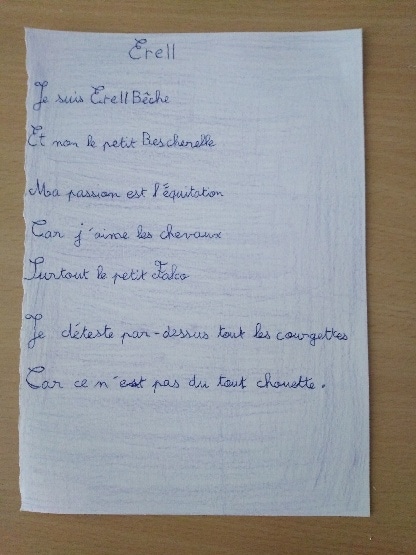 Erell
Je suis Erell Bêche
Et non le petit Bescherelle
Ma passion est l'équitation
Car j'aime les chevaux
Surtout le petit Falco
Je déteste par-dessus tout les courgettes
Car ce n'est pas du tout chouette.